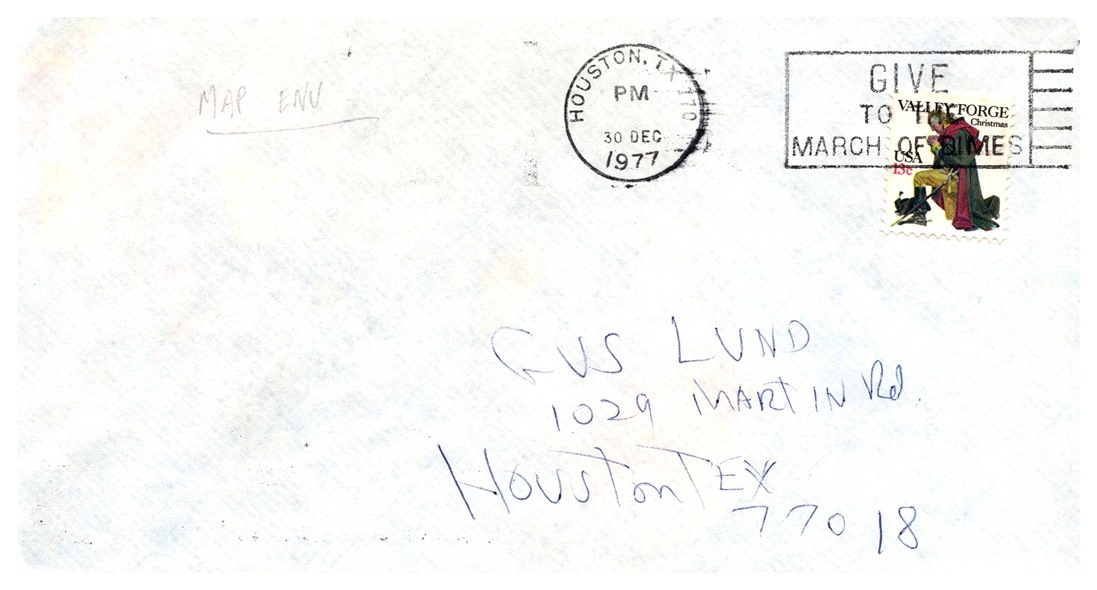 MAP ENV
HOUSTON, TX 770
PM
30 DEC
1977
GIVE
TO THE
MARCH OF DIMES
VALLEY FORGE
Christmas
USA
13c
GUS LUND
1029 MARTIN Rd.
HOUSTON TEX
77018